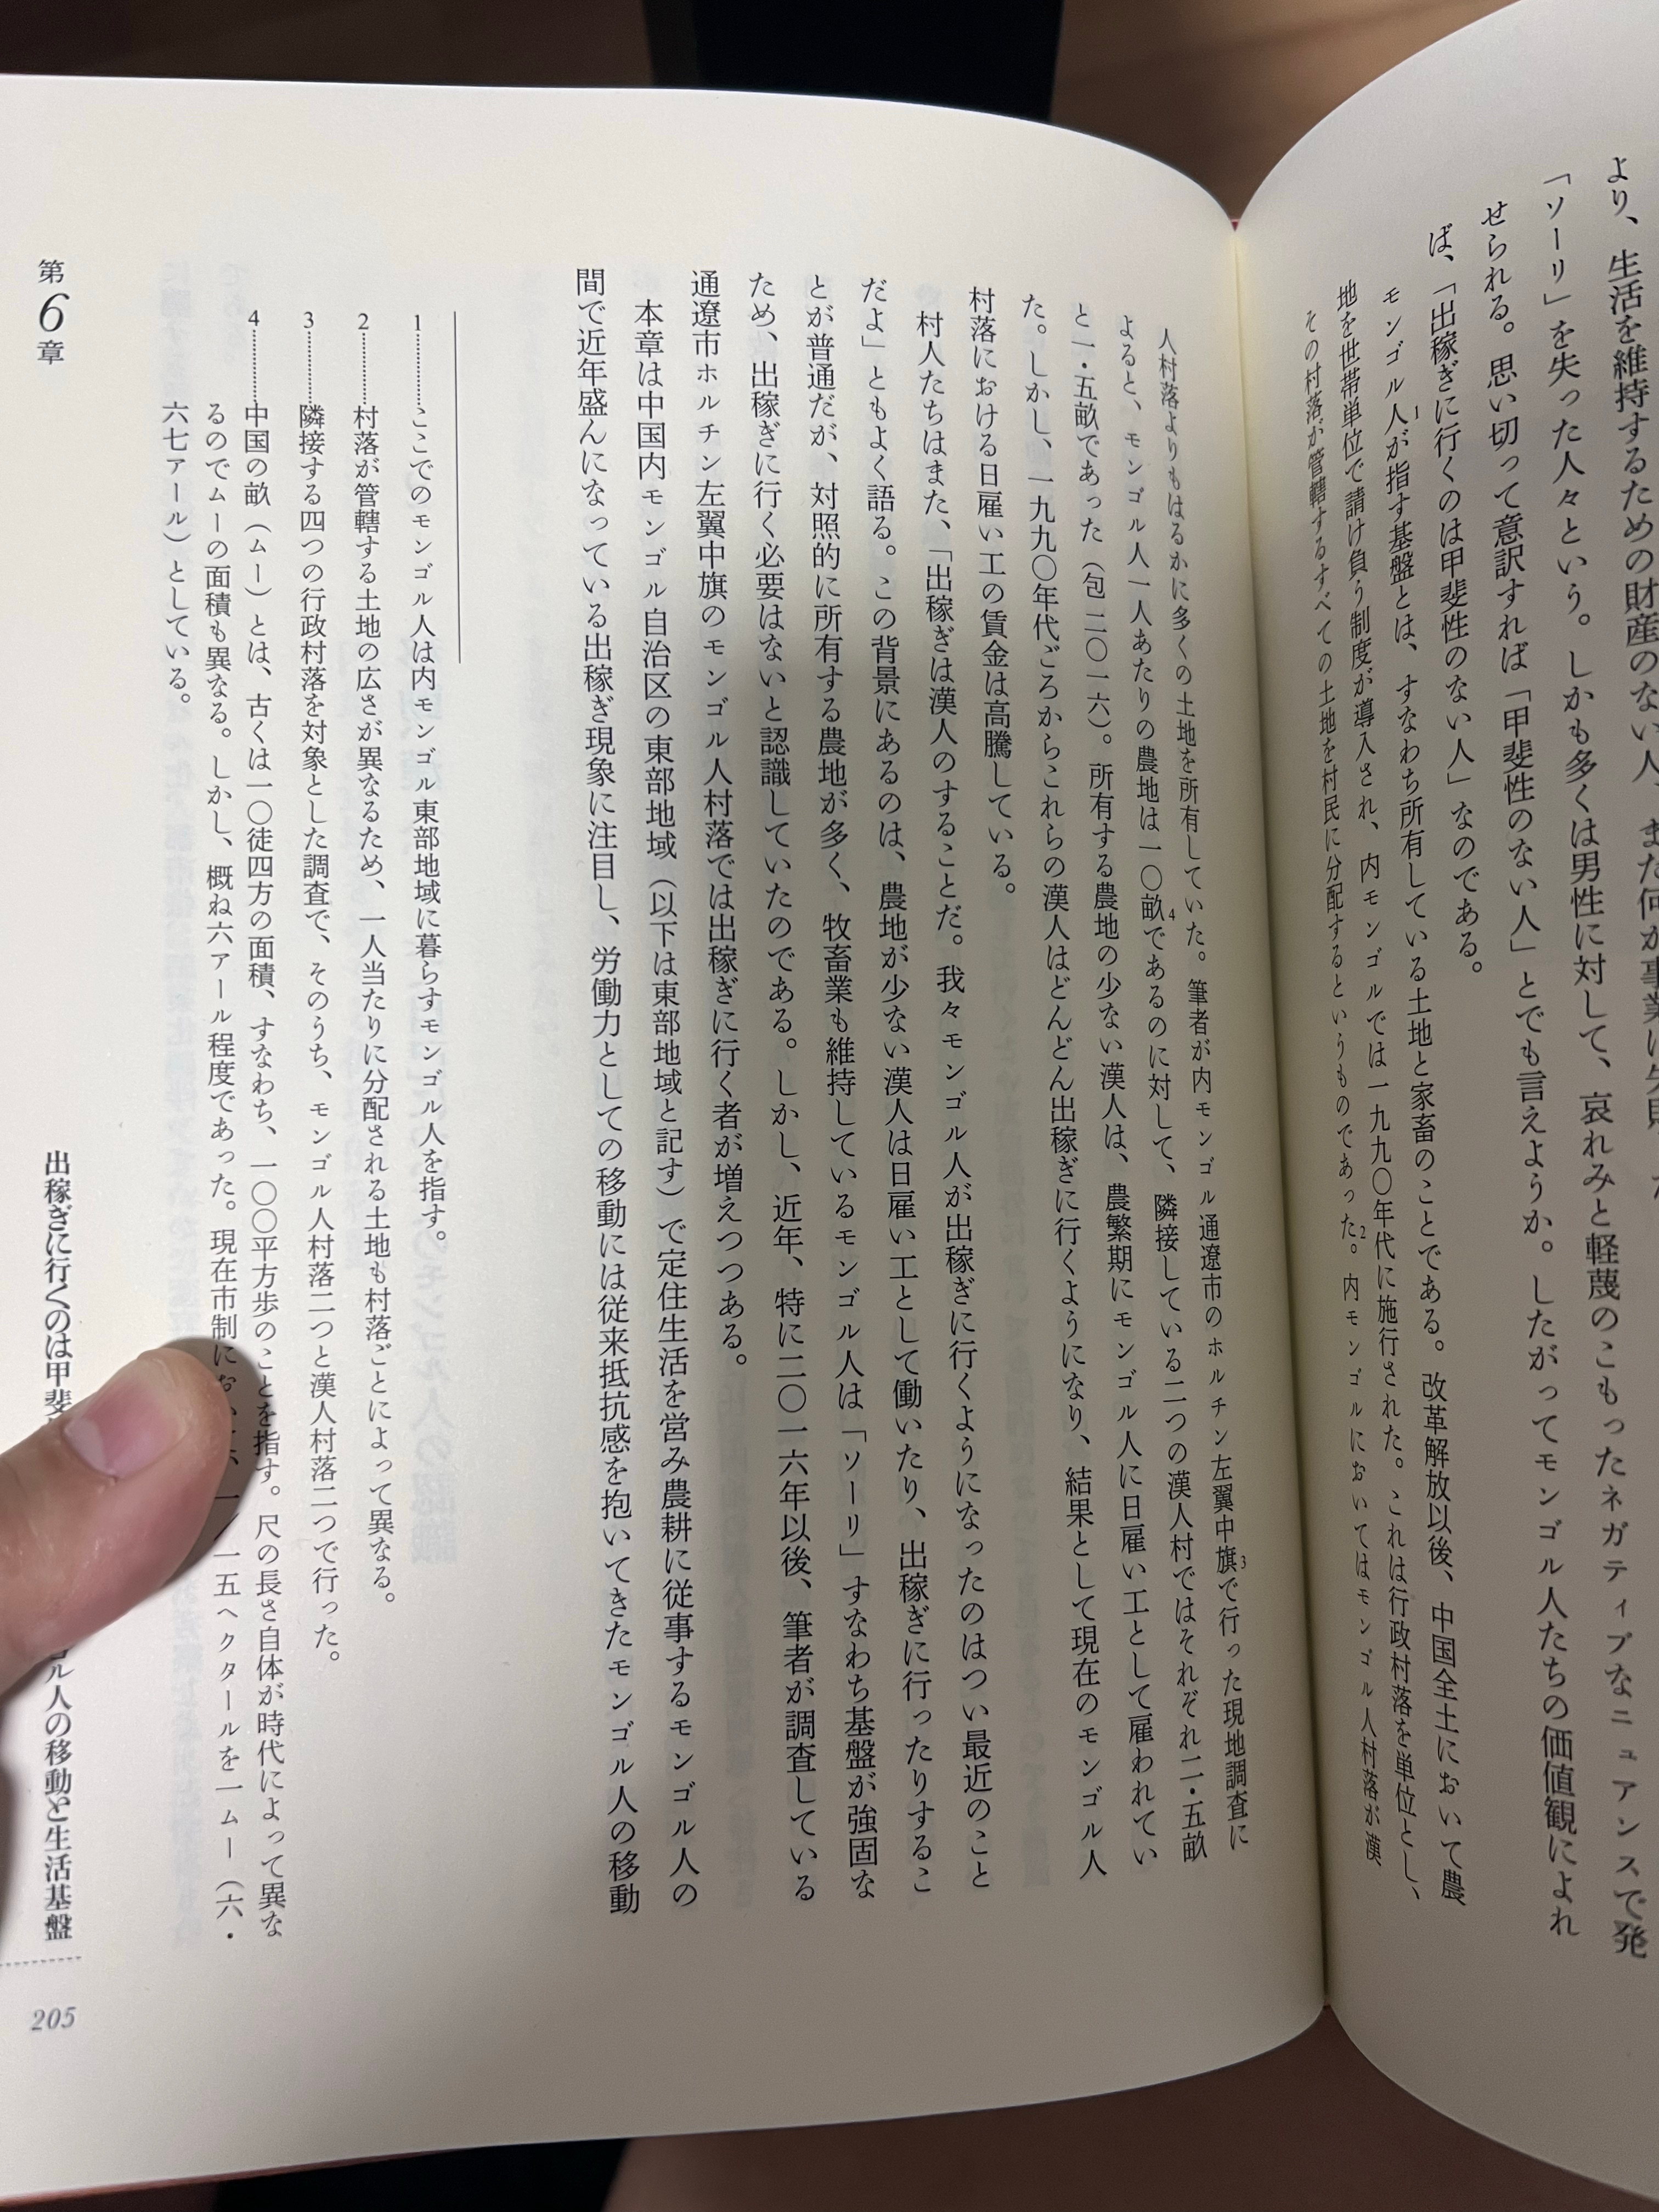 より、生活を維持するための財産のない人、また何か事業に失敗
「ソーリ」を失った人々という。しかも多くは男性に対して、哀れみと軽蔑のこもったネガティブなニュアンスで発
せられる。思い切って意訳すれば「甲斐性のない人」とでも言えようか。したがってモンゴル人たちの価値観によれ
ば、「出稼ぎに行くのは甲斐性のない人」なのである。
モンゴル人1が指す基盤とは、すなわち所有している土地と家畜のことである。改革解放以後、中国全土において農
地を世帯単位で請け負う制度が導入され、内モンゴルでは一九九〇年代に施行された。これは行政村落を単位とし、
その村落が管轄するすべての土地を村民に分配するというものであった2。内モンゴルにおいてはモンゴル人村落が漢
人村落よりもはるかに多くの土地を所有していた。筆者が内モンゴル通遼市のホルチン左翼中旗3で行った現地調査に
よると、モンゴル人一人あたりの農地は一〇畝4であるのに対して、隣接している二つの漢人村ではそれぞれ二・五畝
と一・五畝であった（包 二〇一六）。所有する農地の少ない漢人は、農繁期にモンゴル人に日雇い工として雇われてい
た。しかし、一九九〇年代ごろからこれらの漢人はどんどん出稼ぎに行くようになり、結果として現在のモンゴル人
村落における日雇い工の賃金は高騰している。
村人たちはまた、「出稼ぎは漢人のすることだ。我々モンゴル人が出稼ぎに行くようになったのはつい最近のこと
だよ」ともよく語る。この背景にあるのは、農地が少ない漢人は日雇い工として働いたり、出稼ぎに行ったりするこ
とが普通だが、対照的に所有する農地が多く、牧畜業も維持しているモンゴル人は「ソーリ」すなわち基盤が強固な
ため、出稼ぎに行く必要はないと認識していたのである。しかし、近年、特に二〇一六年以後、筆者が調査している
通遼市ホルチン左翼中旗のモンゴル人村落では出稼ぎに行く者が増えつつある。
本章は中国内モンゴル自治区の東部地域（以下は東部地域と記す）で定住生活を営み農耕に従事するモンゴル人の
間で近年盛んになっている出稼ぎ現象に注目し、労働力としての移動には従来抵抗感を抱いてきたモンゴル人の移動
1…………ここでのモンゴル人は内モンゴル東部地域に暮らすモンゴル人を指す。
2…………村落が管轄する土地の広さが異なるため、一人当たりに分配される土地も村落ごとによって異なる。
3…………隣接する四つの行政村落を対象とした調査で、そのうち、モンゴル人村落二つと漢人村落二つで行った。
4…………中国の畝（ムー）とは、古くは一〇徒四方の面積、すなわち、一〇〇平方歩のことを指す。尺の長さ自体が時代によって異な
るのでムーの面積も異なる。しかし、概ね六アール程度であった。現在市制に 一／一五ヘクタールを一ムー（六・
六七アール）としている。
第6章
出稼ぎに行くのは甲斐 ル人の移動と生活基盤
205